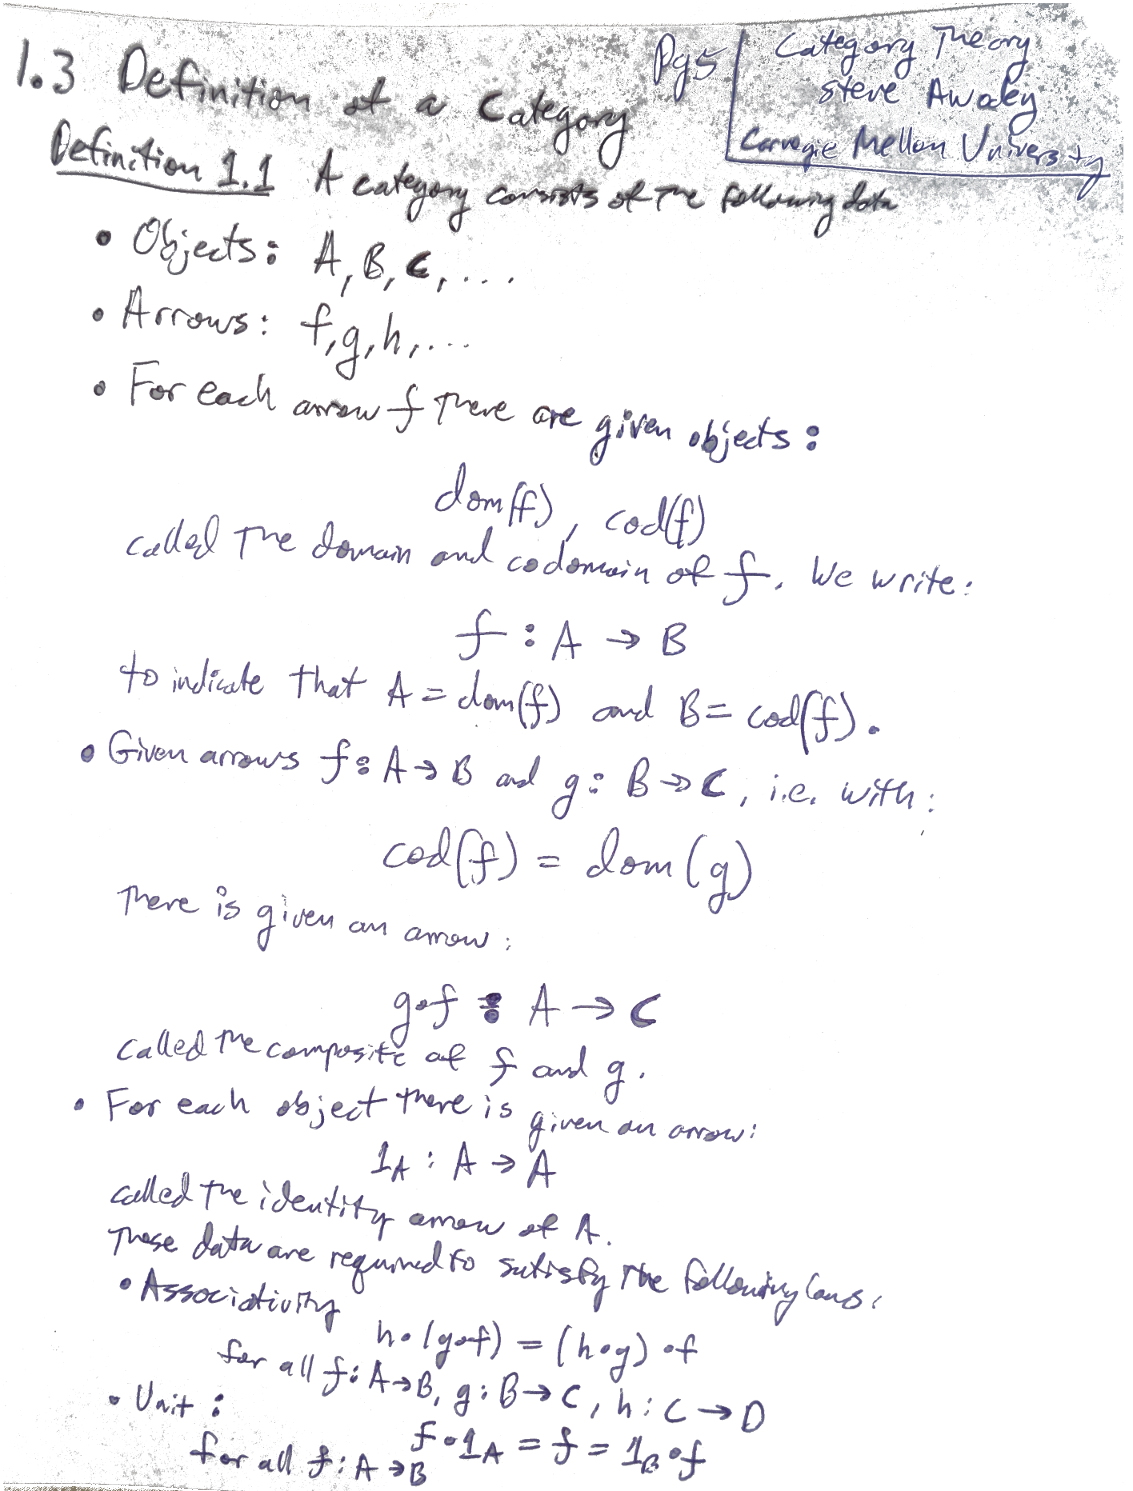 1.3 Definition of a Category
Pg 5
Category Theory
Steve Awodey
Carnegie Mellon University
Definition 1.1 A category consists of the following data
• Objects: A, B, C, ...
• Arrows: f, g, h, ...
• For each arrow f there are given objects:
dom(f), cod(f)
called the domain and codomain of f. We write:
f : A → B
to indicate that A = dom(f) and B = cod(f).
• Given arrows f: A → B and g: B → C, i.e. with:
cod(f) = dom(g)
There is given an arrow:
g∘f : A → C
called the composite of f and g.
• For each object there is given an arrow:
1_A : A → A
called the identity arrow of A.
These data are required to satisfy the following laws:
• Associativity
h∘(g∘f) = (h∘g)∘f
for all f: A→B, g: B→C, h: C→D
• Unit:
f∘1_A = f = 1_B∘f
for all f: A→B